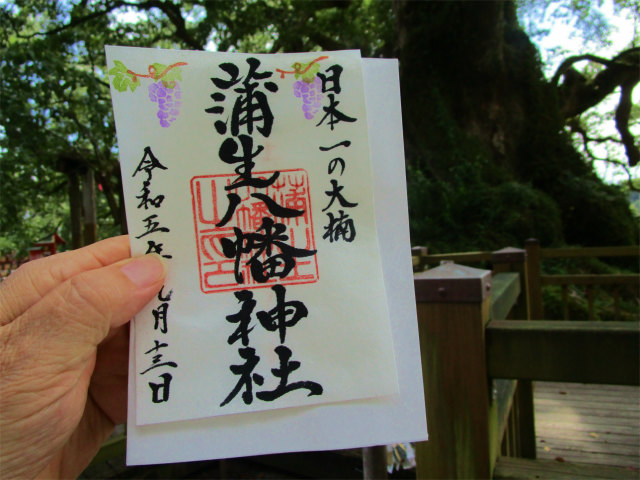 日本一の大楠
蒲生八幡神社
令和五年九月十三日